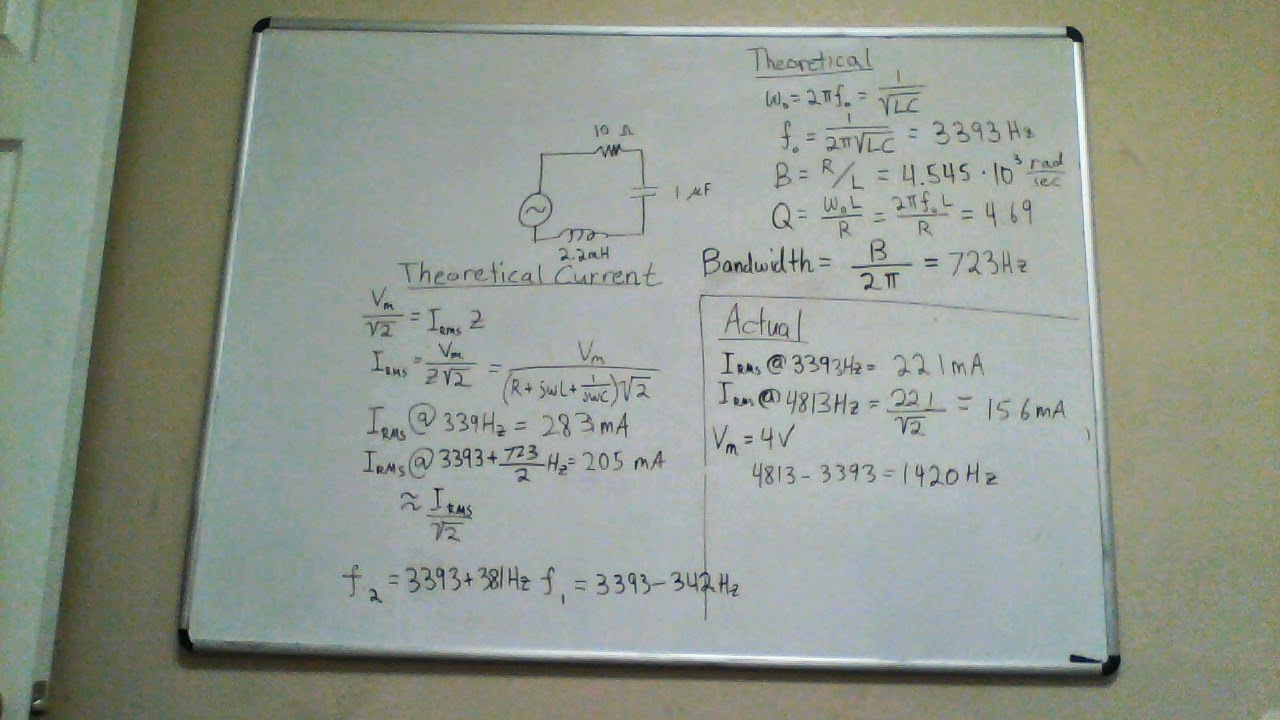 10 Ω
1 μF
2.2mH
Theoretical
ω₀ = 2πf₀ = 1/√LC
f₀ = 1/2π√LC = 3393 Hz
B = R/L = 4.545 · 10³ rad/sec
Q = ω₀L/R = 2πf₀L/R = 4.69
Bandwidth = B/2π = 723Hz
Theoretical Current
Vm/√2 = IRMS Z
IRMS = Vm/Z√2 = Vm/(R + jωL + 1/jωC)√2
IRMS @ 339Hz = 283 mA
IRMS @ 3393 + 723/2 Hz = 205 mA
≈ IRMS/√2
f₂ = 3393 + 381Hz f₁ = 3393 - 342Hz
Actual
IRMS @ 3393Hz = 221mA
IRMS @ 4813Hz = 221/√2 = 156mA
Vm = 4V
4813 - 3393 = 1420 Hz